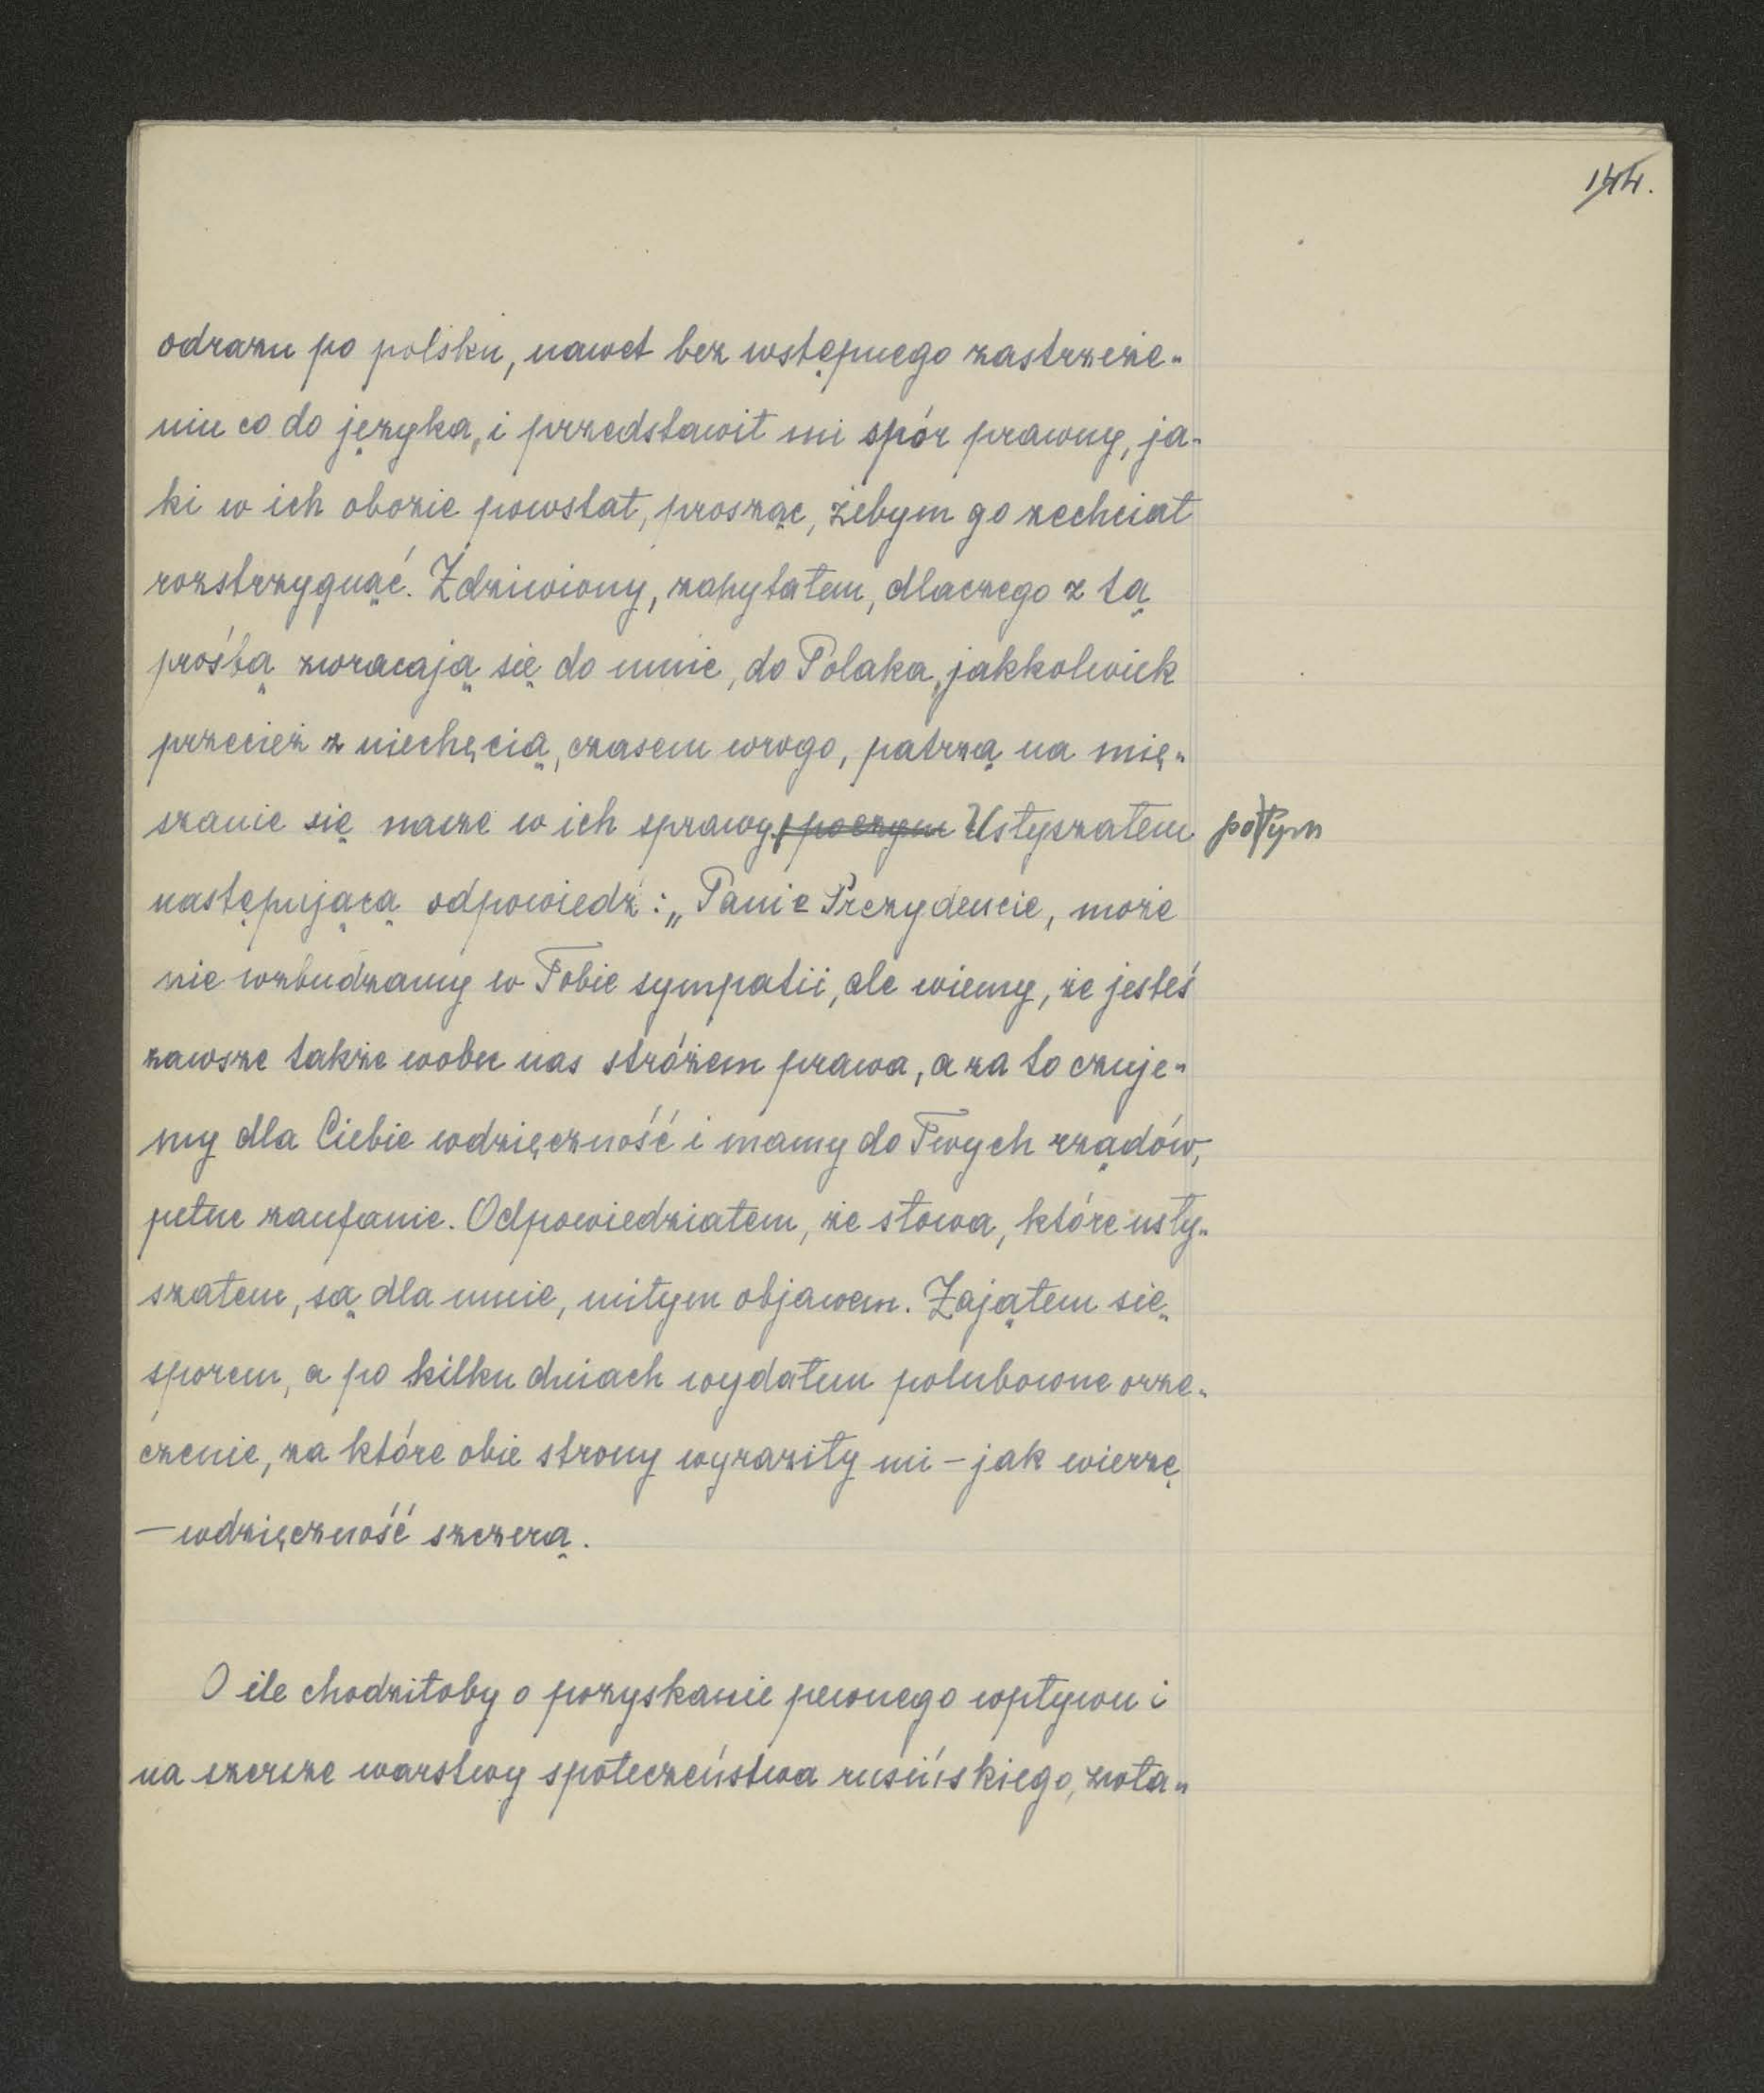 144.
odrazu po polsku, nawet bez wstępnego zastrzeże-
niu co do języka, i przedstawił mi spór prawny, ja-
ki w ich obozie powstał, prosząc, żebym go zechciał
rozstrzygnąć. Zdziwiony, zapytałem, dlaczego z tą
prośbą zwracają się do mnie, do Polaka, jakkolwiek
przecież z niechęcią, czasem wrogo, patrzą na mię-
szanie się nasze w ich sprawy, poczym Usłyszałem potym
następującą odpowiedź: „Panie Prezydencie, może
nie wzbudzamy w Tobie sympatii, ale wiemy, że jesteś
zawsze także wobec nas stróżem prawa, a za to czuje-
my dla Ciebie wdzięczność i mamy do Twych rządów,
pełne zaufanie. Odpowiedziałem, że słowa, które usły-
szałem, są dla mnie, miłym objawem. Zająłem się
sporem, a po kilku dniach wydałem polubowne orze-
czenie, za które obie strony wyraziły mi – jak wierzę
– wdzięczność szczerą.
O ile chodziłoby o pozyskanie pewnego wpływu i
na szersze warstwy społeczeństwa rusińskiego, zwła-